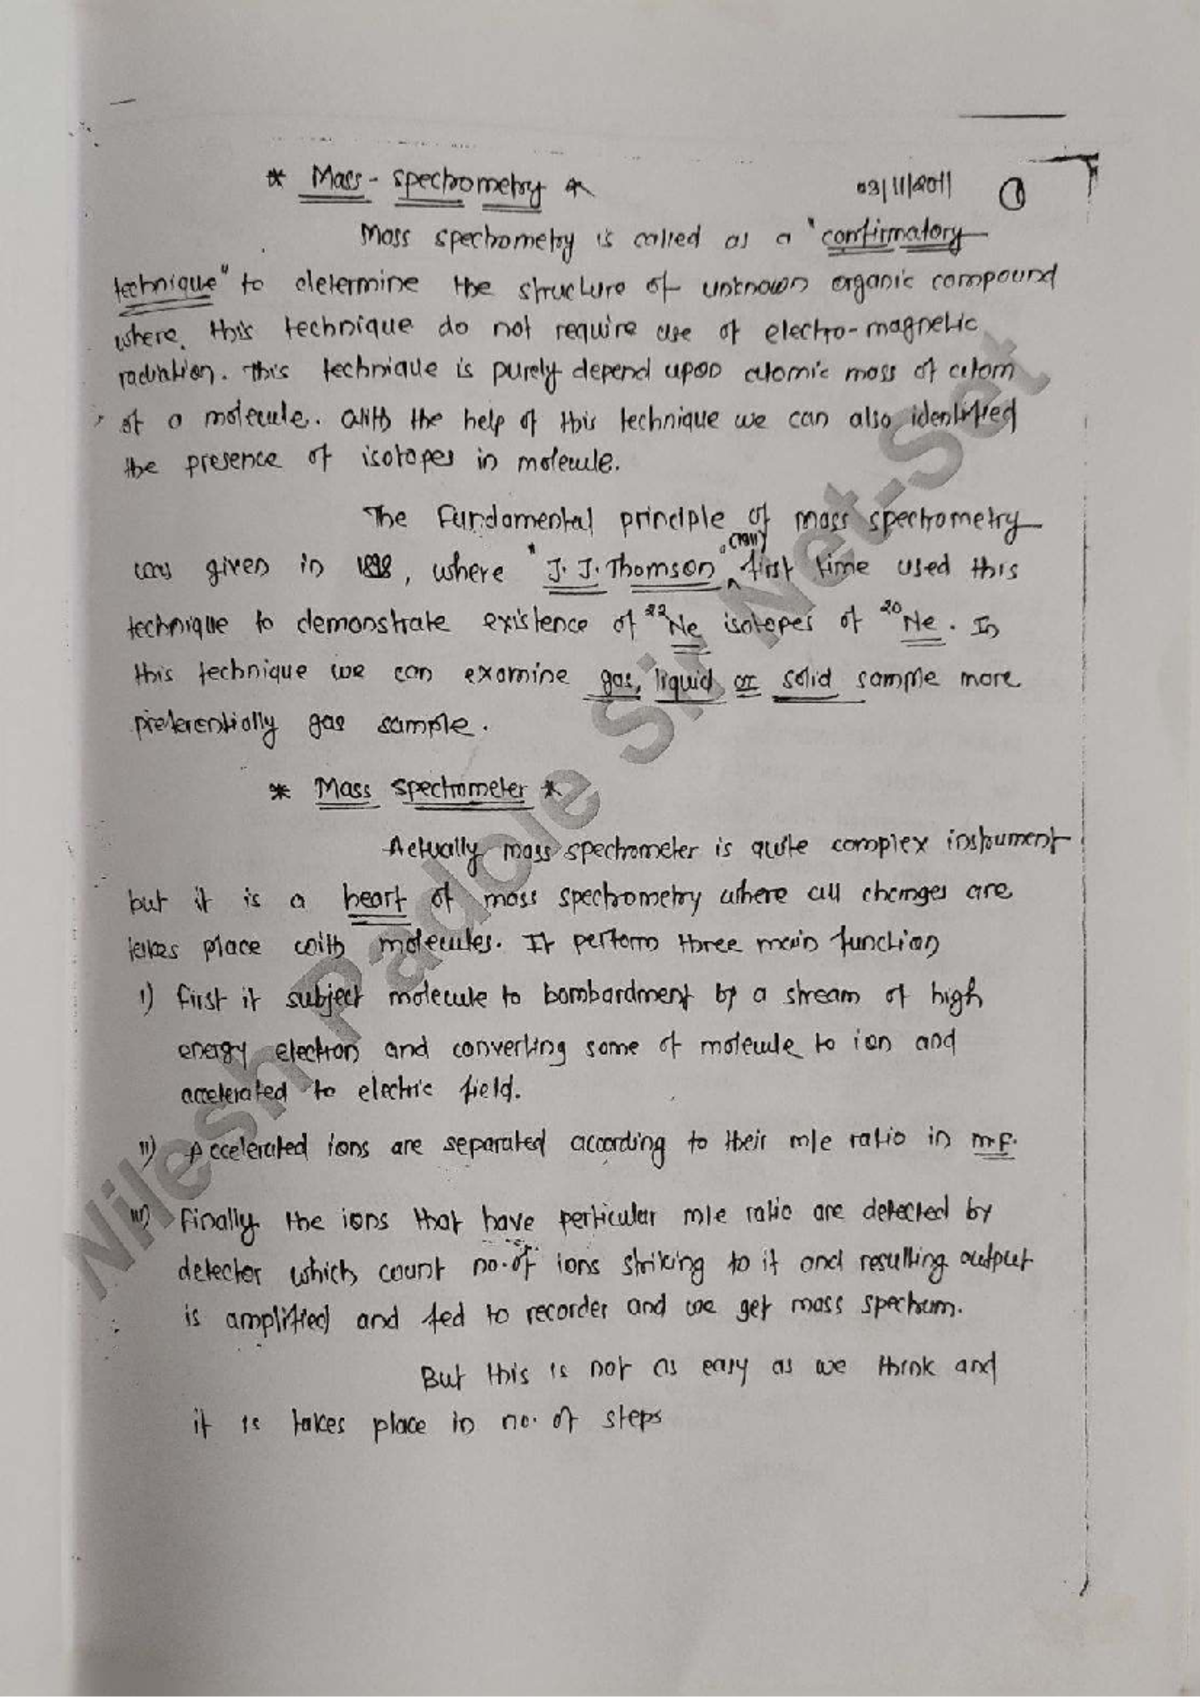 * Mass - spectrometry *
03/11/2011 1
Mass spectrometry is called as a "confirmatory
technique" to determine the structure of unknown organic compound
where, this technique do not require use of electro-magnetic
radiation. This technique is purely depend upon atomic mass of atom
of a molecule. With the help of this technique we can also identified
the presence of isotopes in molecule.
The Fundamental principle of mass spectrometry
was given in 1898, where "J. J. Thomson" (1911) first time used this
technique to demonstrate existence of 22Ne isotopes of 20Ne. In
this technique we can examine gas, liquid or solid sample more
preferentially gas sample.
* Mass spectrometer *
Actually mass spectrometer is quite complex instrument
but it is a heart of mass spectrometry where all changes are
takes place with molecules. It perform three main function
i) first it subject molecule to bombardment by a stream of high
energy electron and converting some of molecule to ion and
accelerated to electric field.
ii) Accelerated ions are separated according to their m/e ratio in m.F.
iii) Finally the ions that have perticular m/e ratio are detected by
detector which count no. of ions striking to it and resulting output
is amplified and fed to recorder and we get mass spectrum.
But this is not as easy as we think and
it is takes place in no. of steps
Nilesh Padole Sir Net-Set